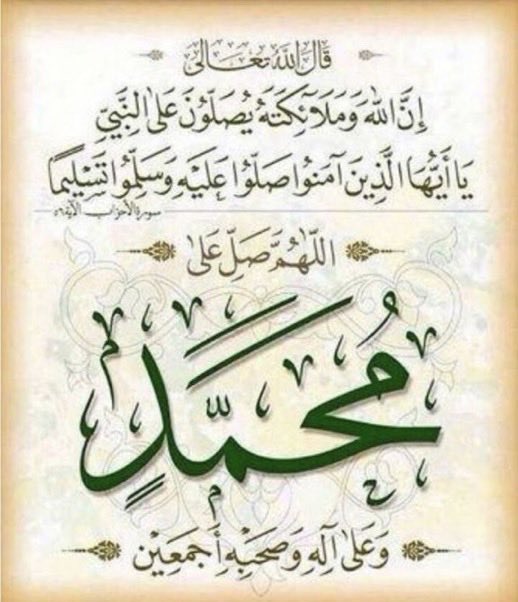 قَالَ اللَّهُ تَعَالَى
إِنَّ اللَّهَ وَمَلَآئِكَتَهُ يُصَلُّونَ عَلَى النَّبِيِّ
يَا أَيُّهَا الَّذِينَ آمَنُوا صَلُّوا عَلَيْهِ وَسَلِّمُوا تَسْلِيمًا
سورة الأحزاب الآية ٥٦
اللَّهُمَّ صَلِّ عَلَى
مُحَمَّدٍ
وَعَلَى آلِهِ وَصَحْبِهِ أَجْمَعِينَ